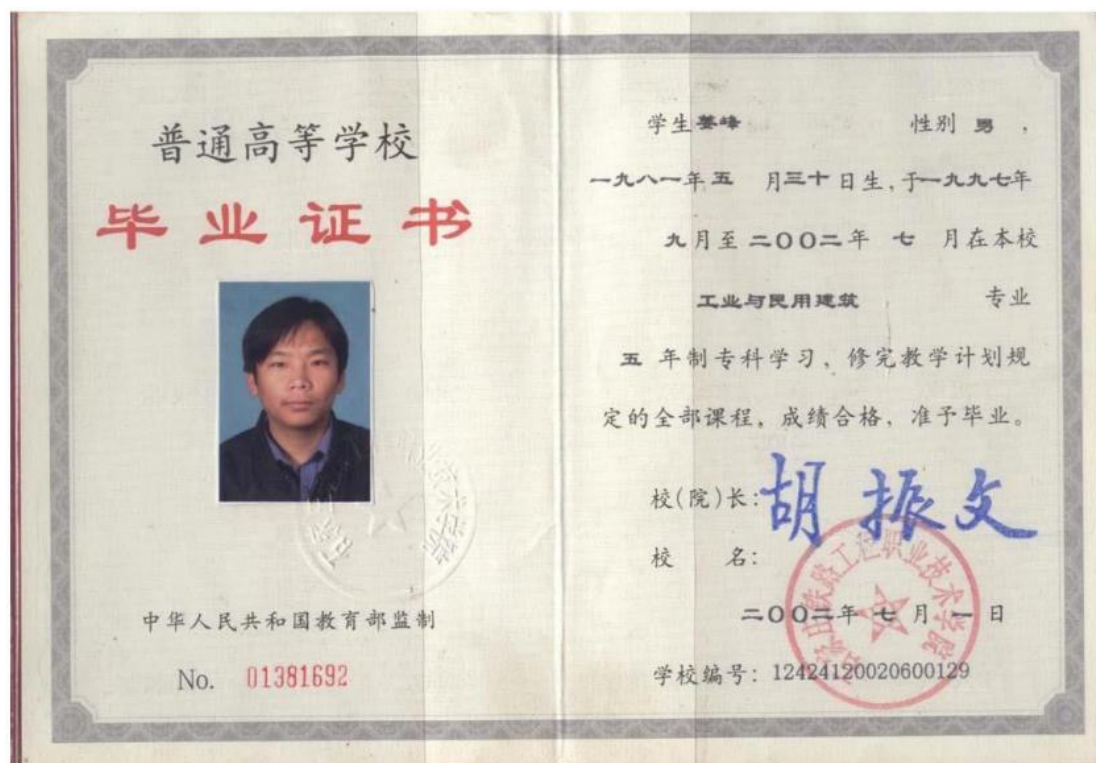 普通高等学校
毕业证书
中华人民共和国教育部监制
No. 01381692
学生姜峰 性别 男，
一九八一年五 月三十日生，于一九九七年
九月至二〇〇二年 七 月在本校
工业与民用建筑 专业
五 年制专科学习，修完教学计划规
定的全部课程，成绩合格，准予毕业。
校(院)长：胡振文
校 名：
二〇〇二年 七 月 一 日
学校编号：12424120020600129
铁路工程职业技术学院